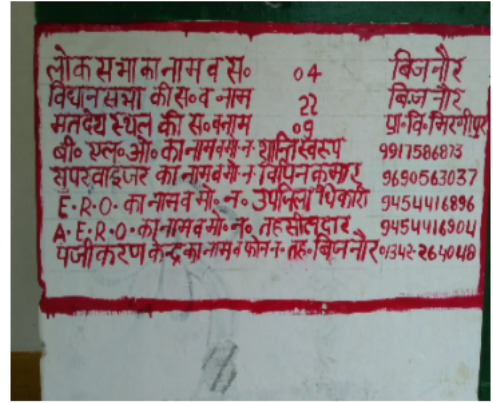 लोक सभा का नाम व स० 04 बिजनौर
विधान सभा की स० व नाम 22 बिजनौर
मतदेय स्थल की स० व नाम 09 प्रा० वि० मिरगीपुर
बी० एल० ओ० का नाम व मो० न० शान्ति स्वरूप 9917586873
सुपरवाइजर का नाम व मो० न० विपिन कुमार 9690563037
E.R.O. का नाम व मो० न० उपजिलाधिकारी 9454416896
A.E.R.O. का नाम व मो० न० तहसीलदार 9454416904
पंजीकरण केन्द्र का नाम व फोन न० तह० बिजनौर 01342-264048